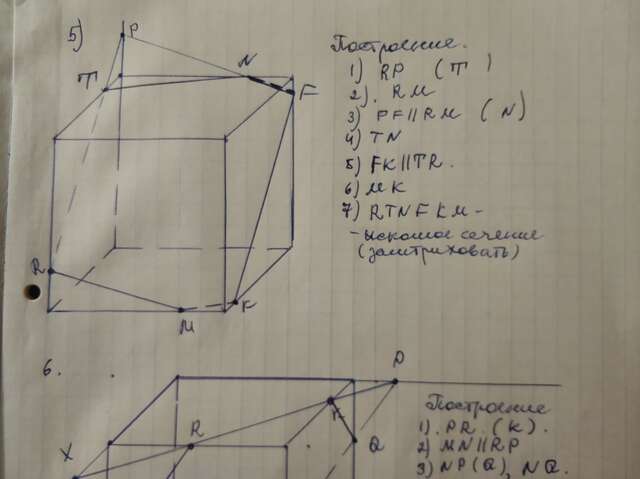 5)
P
Построение.
T
N
F
1) RP (T)
2). RM
3) PF || RM (N)
4) TN
5) FK || TR.
6) MK
7) RTNFKM -
- искомое сечение
(заштриховать)
R
M
K
6.
P
Построение
K
1). PR. (K).
R
Q
2) MN || RP
X
3) NP (Q), NQ.